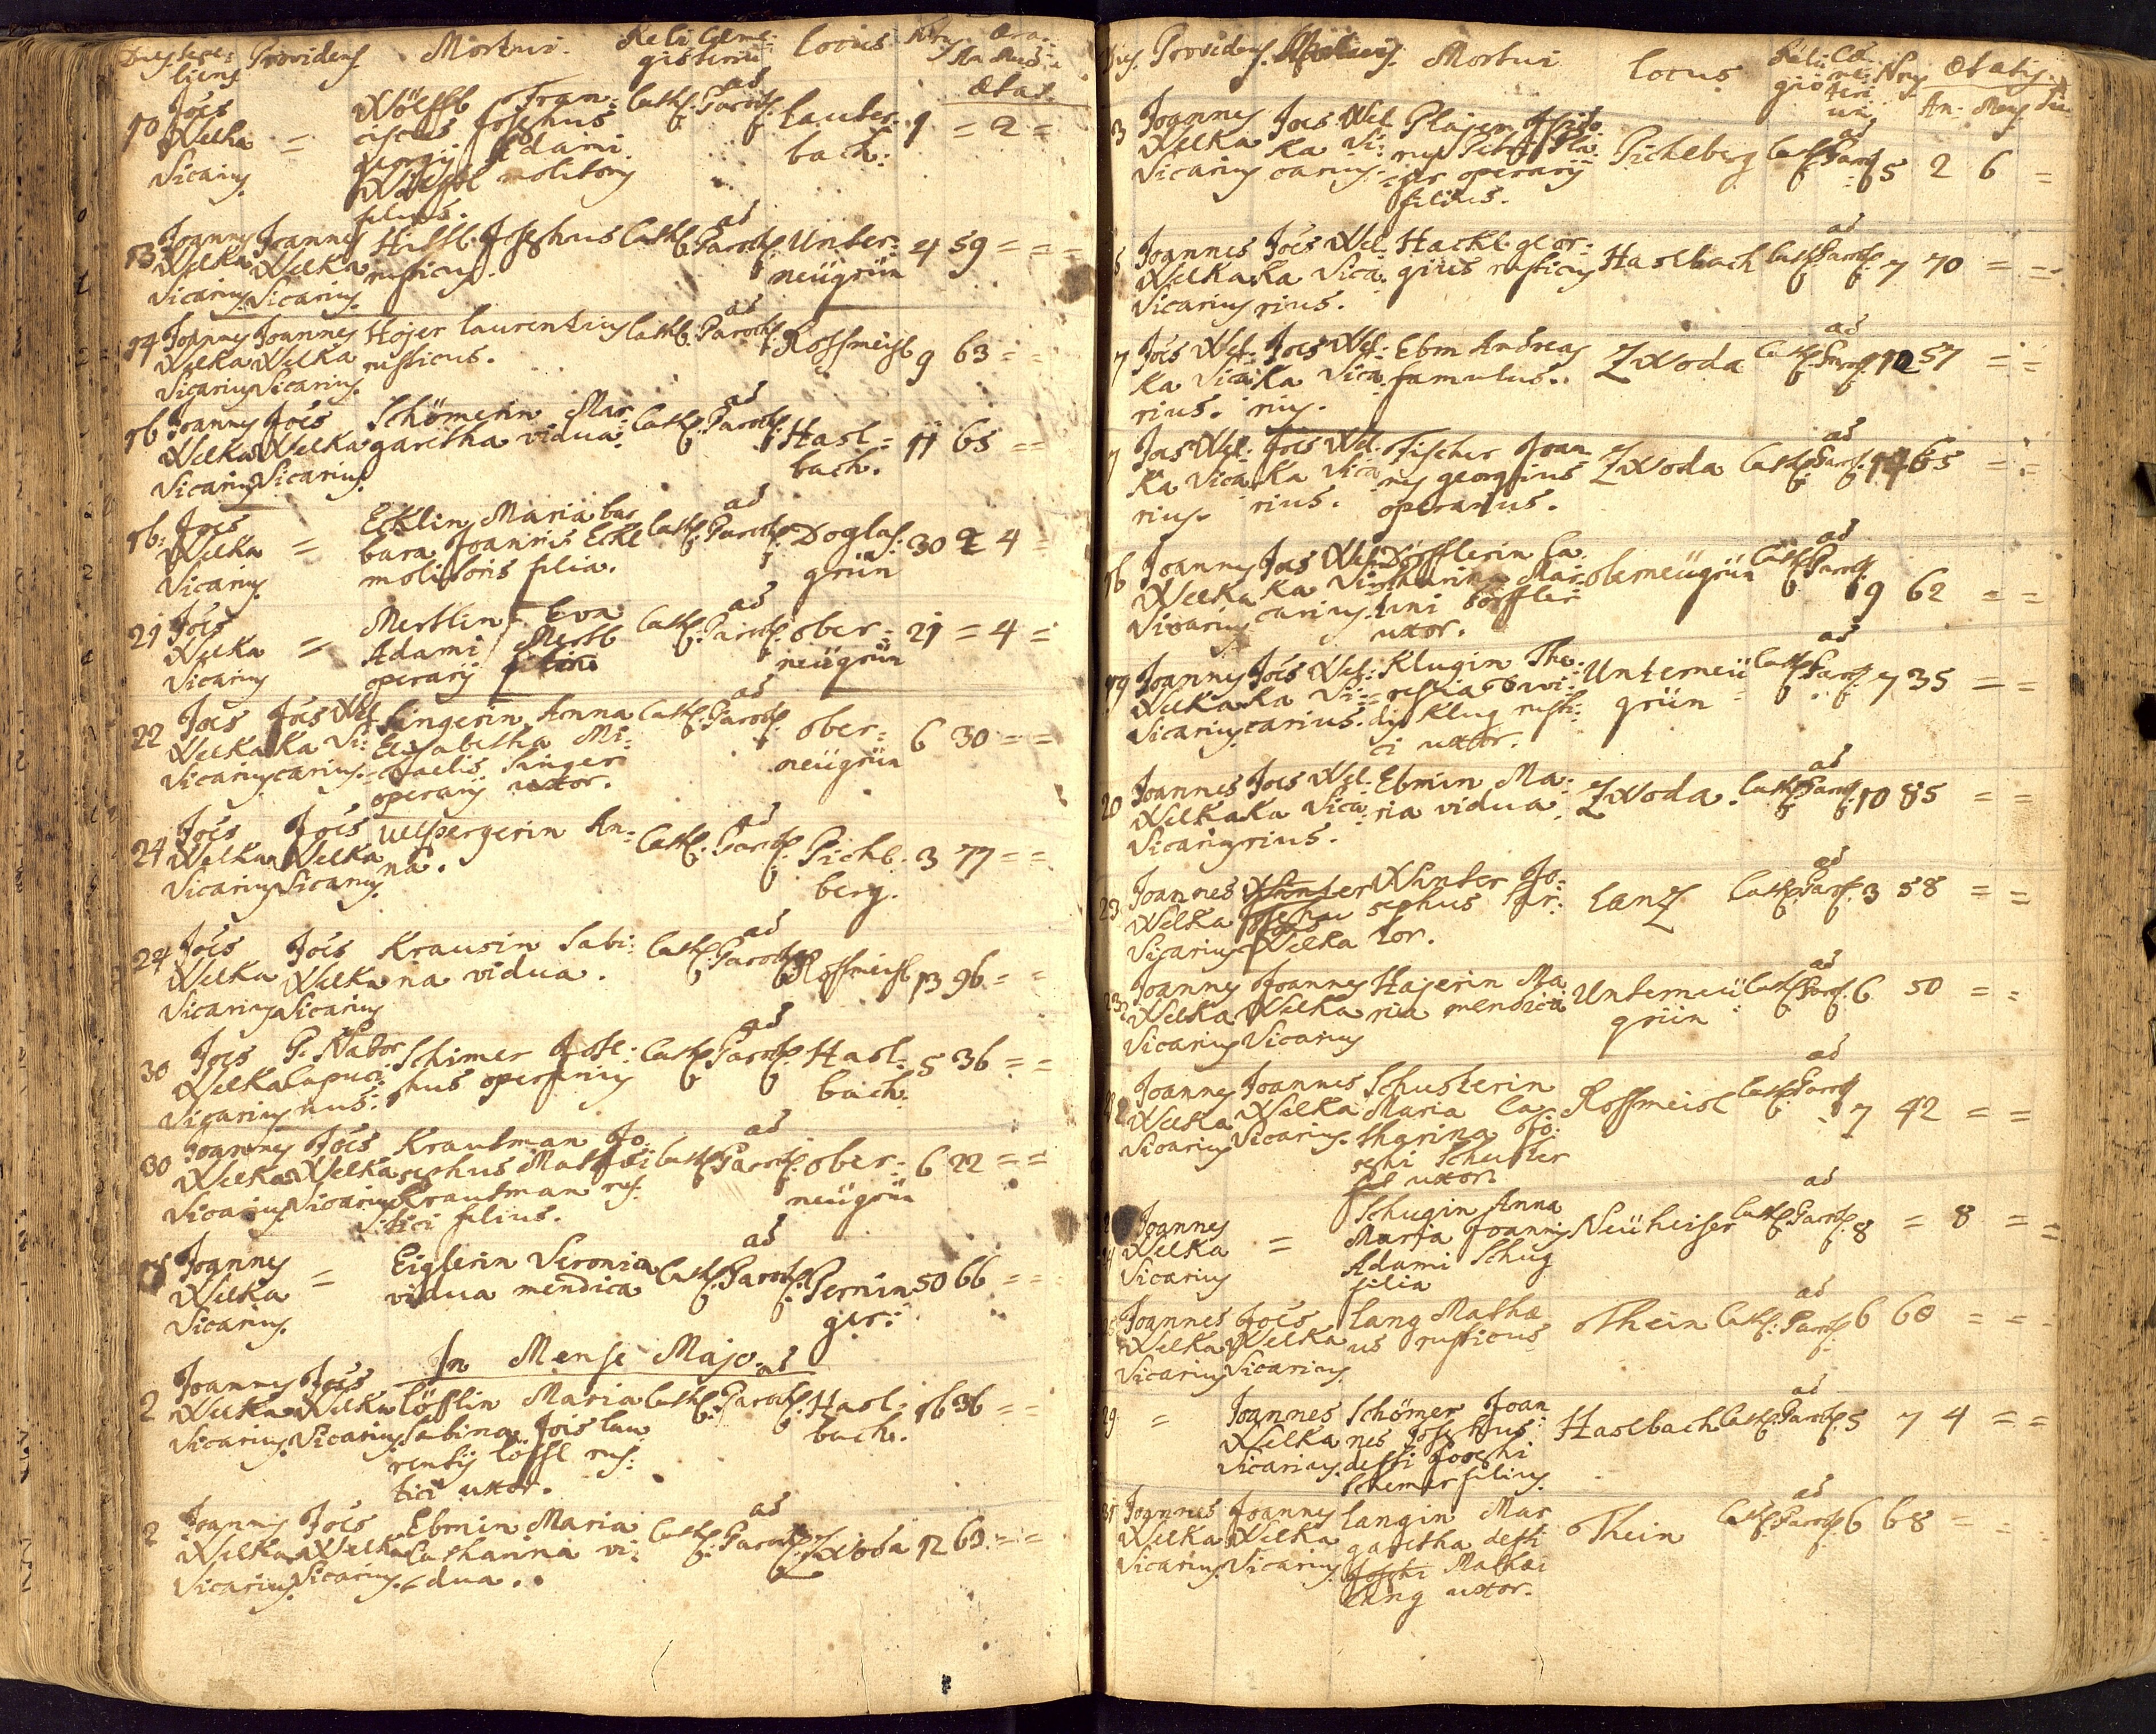 Dies Sepeliens Providens Mortui. Religio Cæmeterium Locus Nrus An. Mens. Ætat.
10 Joes Welka Vicarius = Wölffl Franciscus Josephus Georgij Adami Wölffl molitoris filius. Cath. ad Paroch. Lauterbach: 1 = 2 =
13 Joannes Welka Vicarius Joannes Welka Vicarius. Josephus rusticus. Cath. ad Paroch. Unterneügrün 4 59 = =
14 Joannes Welka Vicarius Joannes Welka Vicarius. Hojer Laurentius rusticus. Cath. ad Paroch. Rossmeisl 9 63 = =
16 Joannes Welka Vicarius Joes Welka Vicarius Schömerin Margaretha vidua. Cath. ad Paroch. Haslbach. 11 65 = =
16. Joes Welka Vicarius = Ecklin Maria barbara Joannis Eckl molitoris filia. Cath. ad Paroch. Doglasgrün 30 2 4 =
21 Joes Welka Vicarius = Mertlin Eva Adami Mertl operarij filia Cath. ad Paroch. oberneügrün 21 = 4 =
22 Joes Welka Vicarius Joes Welka Vicarius. Singerin Anna Elisabetha Michaelis Singer operarij uxor. Cath. ad Paroch. oberneügrün 6 30 = =
24 Joes Welka Vicarius Joes Welka Vicarius Anna. Cath. ad Paroch. Pichlberg. 3 77 = =
24 Joes Welka Vicarius Joes Welka Vicarius Krausin Sabina vidua. Cath. ad Paroch. Rossmeisl 13 96 = =
30 Joes Welka Vicarius P. Nabor Capucinus. Schimer Josephus operarius Cath. ad Paroch. Haslbach. 5 36 = =
30 Joannes Welka Vicarius Joes Welka Vicarius Krautman Josephus Mathæi Krautman rustici filius. Cath. ad Paroch. oberneügrün 6 22 = =
Joannes Welka Vicarius. = Eiglerin Veronica vidua mendica Cath. ad Paroch. 50 66 = =
In Mense Majo.
2 Joannes Welka Vicarius Joes Welka Vicarius Löfflin Maria Sabina Jois Laurentij Löffl rustici uxor. Cath. ad Paroch. Haslbach. 16 36 = =
2 Joannes Welka Vicarius Joes Welka Vicarius. Ebmin Maria Catharina vidua. Cath. ad Paroch. Zwoda 12 63 = =
Dies. Providens. Mortui Locus Religio Cæmeterium Nrus Ætatis An. Mens. Die.
3 Joannes Welka Vicarius Joes Welka Vicarius. Petri operarij filius. Pichlberg Cath. ad Paroch. 5 2 6 =
5 Joannes Welka Vicarius Joes Welka Vicarius. Hackl georgius rusticus Haslbach Cath. ad Paroch. 7 70 = =
7 Joes Welka Vicarius. Joes Welka Vicarius. Ebm Andreas famulus. Zwoda Cath. ad Paroch. 12 57 = =
7 Joes Welka Vicarius Joes Welka Vicarius. Fischer Joannes georgius operarius. Zwoda Cath. ad Paroch. 14 65 = =
16 Joannes Welka Vicarius Joes Welka Vicarius. Döfflerin Catharina uxor. oberneügrün Cath. ad Paroch. 9 62 = =
19 Joannes Welka Vicarius Joes Welka Vicarius. Klugin Theresia Klug rustici uxor. Unterneügrün Cath. ad Paroch. 7 35 = =
20 Joannes Welka Vicarius Joes Welka Vicarius. Ebmin Maria vidua. Zwoda. Cath. ad Paroch. 10 85 = =
23 Joannes Welka Vicarius Joes Welka Winter Josephus Lanz Cath. ad Paroch. 3 58 = =
23 Joannes Welka Vicarius Joannes Welka Vicarius Hajerin Maria mendica Unterneügrün Cath. ad Paroch. 6 50 = =
Joannes Welka Vicarius Joannes Welka Vicarius. Schusterin Maria Catharina Josephi Schuster uxor. Rossmeisl Cath. ad Paroch. 7 42 = =
Joannes Welka Vicarius = Schugin Anna Maria Joannis Adami Schug filia Neüheiser Cath. ad Paroch. 8 = 8 = =
Joannes Welka Vicarius Joes Welka Vicarius. Lang Mathæus rusticus Thein Cath. ad Paroch. 6 68 = =
29. = Joannes Welka Vicarius. Schömer Joannes Josephus defti Josephi Schemer filius. Haslbach Cath. ad Paroch. 5 7 4 = =
31 Joannes Welka Vicarius. Joannes Welka Vicarius. Langin Margaretha defti Mathæi Lang uxor. Thein Cath. ad Paroch. 6 68 = =